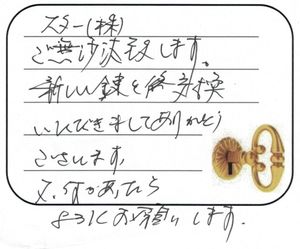 スター(株)
ご無沙汰致します。
新しい鍵を交換
いただきましてありがとう
ございます。
又、何かあったら
よろしくお願いします.